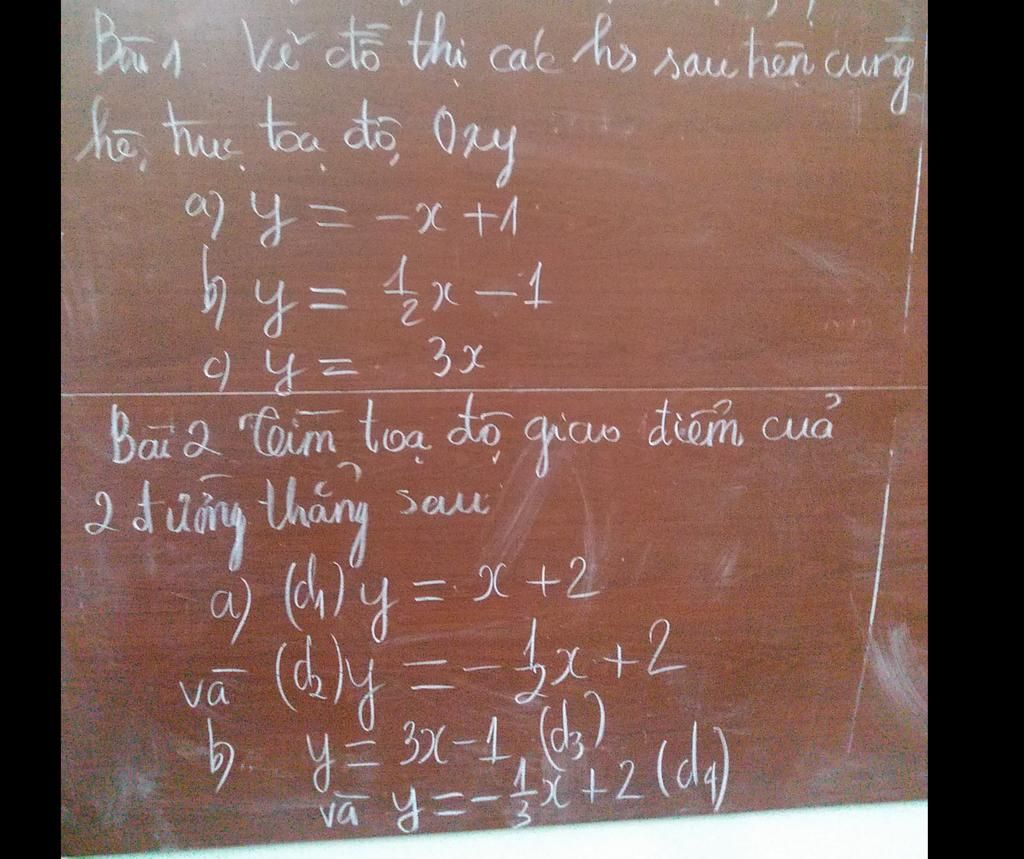 Bài 1 Vẽ đồ thị các hs sau trên cùng
hệ trục toạ độ Oxy
a) y = -x + 1
b) y = 1/2 x - 1
c) y = 3x
Bài 2 Tìm toạ độ giao điểm của
2 đường thẳng sau
a) (d1) y = x + 2
và (d2) y = - 1/2 x + 2
b. y = 3x - 1 (d3)
và y = - 1/3 x + 2 (d4)